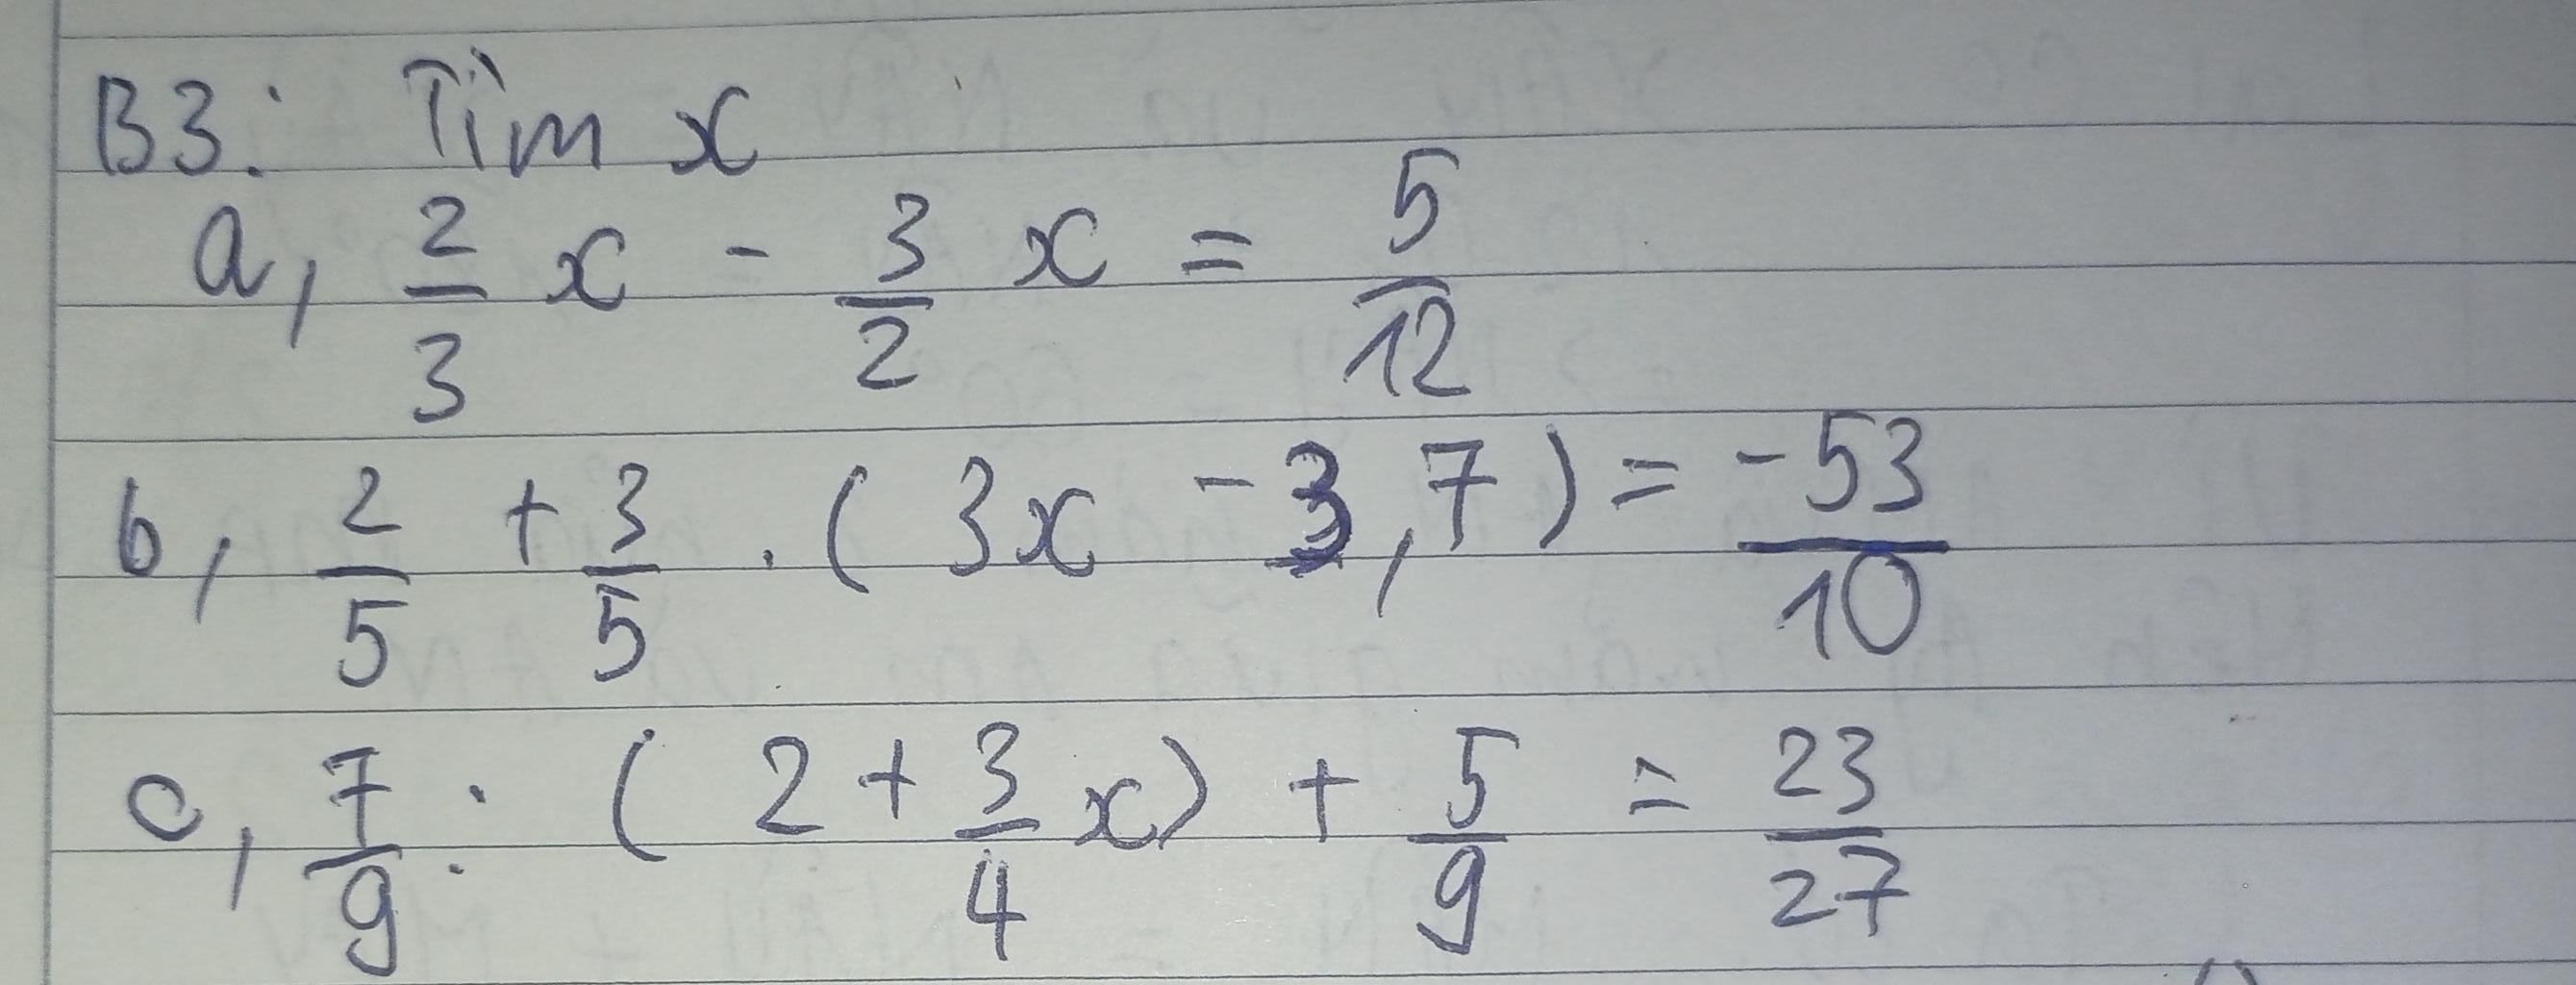 B3: Tìm x
a, 2/3 x - 3/2 x = 5/12
b, 2/5 + 3/5 . (3x - 3,7) = -53/10
c, 7/9 : (2 + 3/4 x) + 5/9 = 23/27